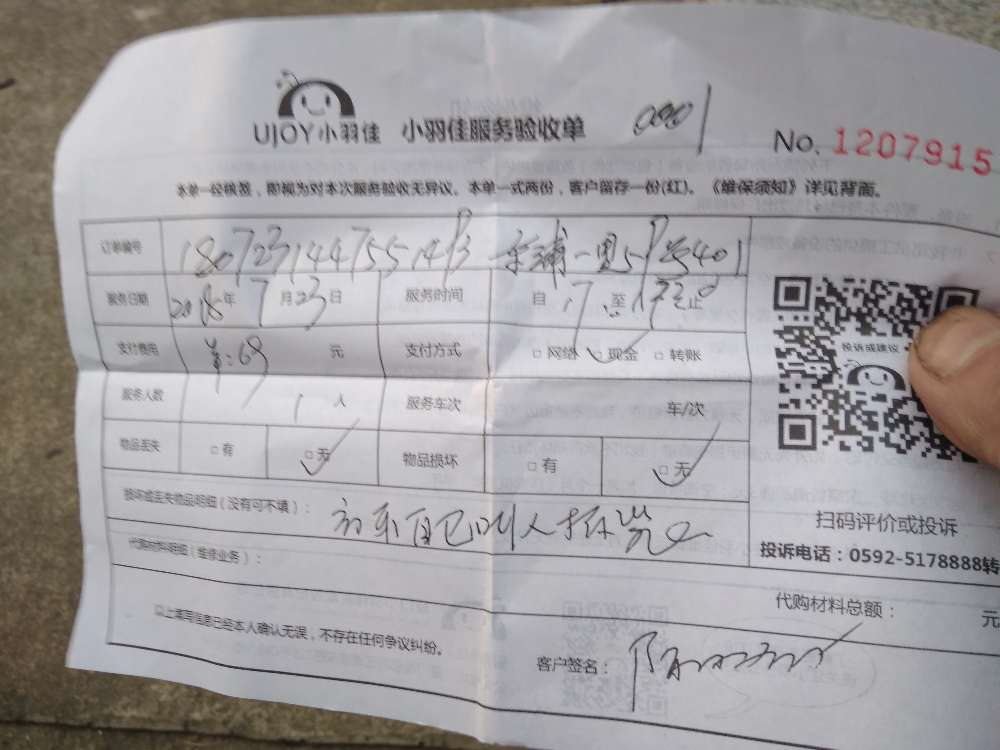 UJOY小羽佳 小羽佳服务验收单
No. 1207915
本单一经核签，即视为对本次服务验收无异议。本单一式两份，客户留存一份(红)。《维保须知》详见背面。
订单编号
服务日期 2018年 7月23日 服务时间 自 17 至 止
支付费用 69 元 支付方式 □网络 □现金 □转账
服务人数 1 人 服务车次 车/次
物品丢失 □有 □无 物品损坏 □有 □无
损坏或丢失物品明细（没有可不填）：
代购材料明细（维修业务）：
以上填写信息已经本人确认无误，不存在任何争议纠纷。
投诉或建议
扫码评价或投诉
投诉电话：0592-5178888转
代购材料总额： 元
客户签名：